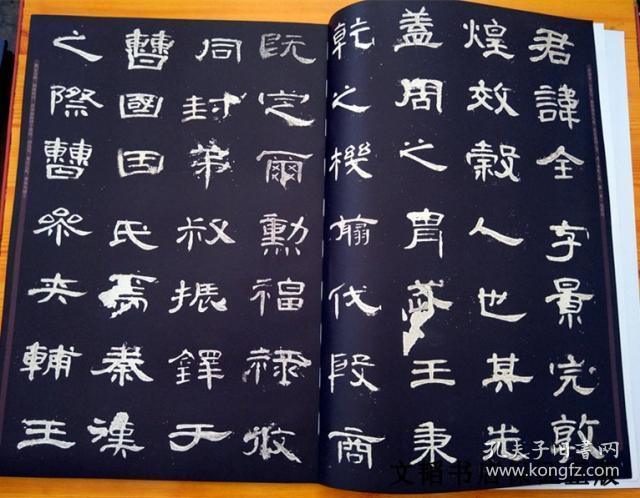 君諱全字景完敦
煌效穀人也其先
蓋周之胄武王秉
乾之機翦伐殷商
既定爾勳福祿攸
同封弟叔振鐸于
曹國因氏焉秦漢
之際曹參夹輔王
孔夫子旧书网
www.kongfz.com